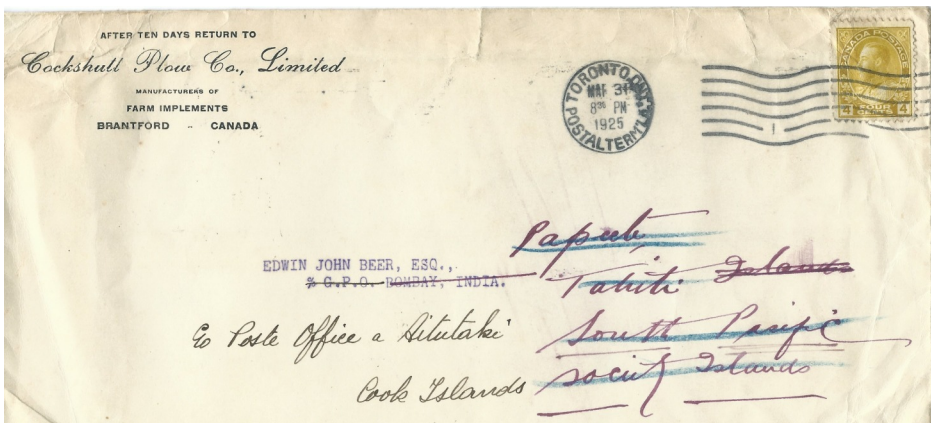 AFTER TEN DAYS RETURN TO
Cockshutt Plow Co., Limited
MANUFACTURERS OF
FARM IMPLEMENTS
BRANTFORD - CANADA
TORONTO, ONT.
MAR 31
8 30 PM
1925
POSTAL TERM'L A
CANADA POSTAGE
4 FOUR 4
CENTS
EDWIN JOHN BEER, ESQ.,
% G.P.O. BOMBAY, INDIA.
Papeete,
Tahiti Islands
South Pacific
Society Islands
Co Poste Office a Aitutaki
Cook Islands